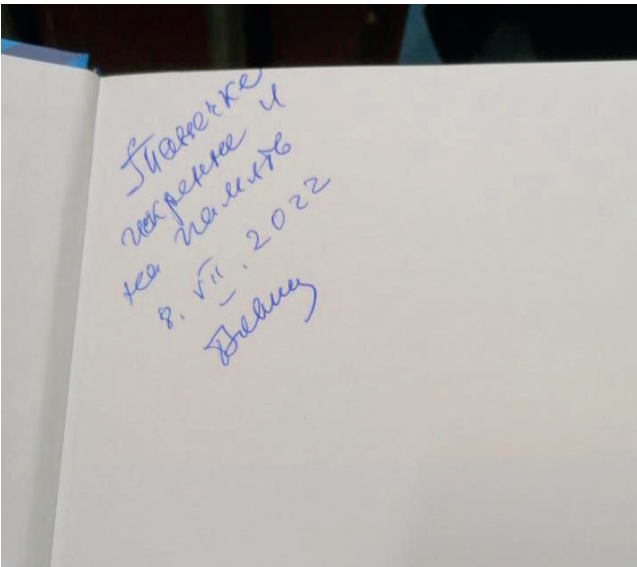 Танечке
искренне и
на память
8. VII. 2022